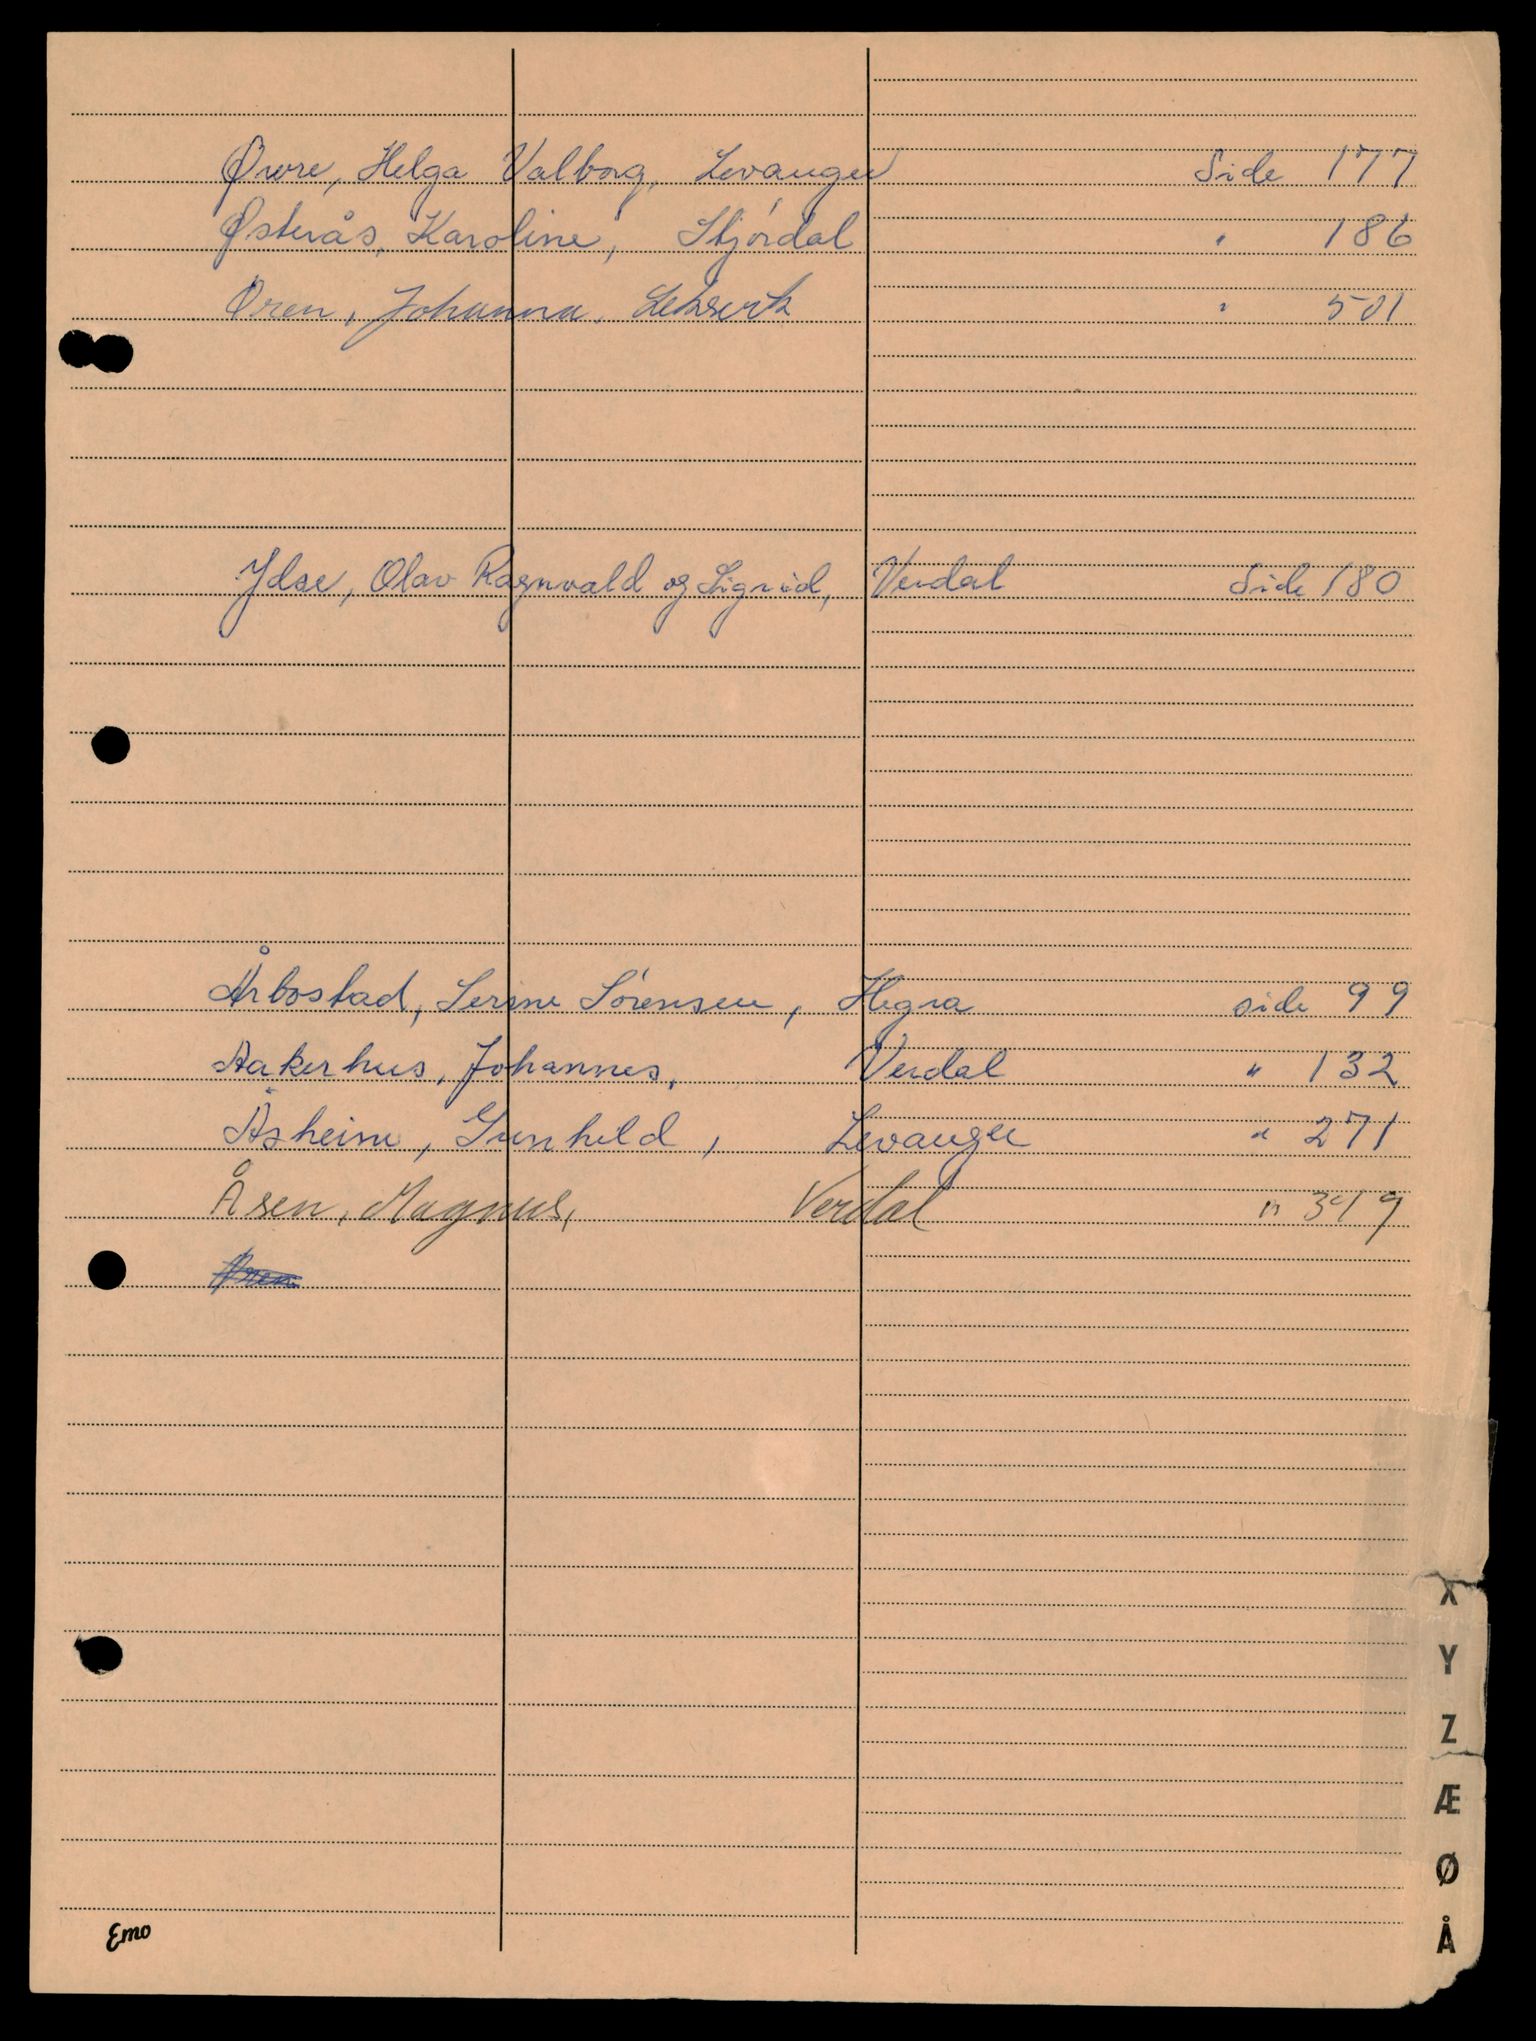 Øvre, Helga Valborg, Levanger Side 177
Østerås, Karoline, Stjørdal " 186
Øren, Johanna, Leksvik " 501
Ydse, Olav Ragnvald og Sigrid, Verdal Side 180
Årbostad, Serine Sørensen, Hegra side 99
Aakerhus, Johannes, Verdal " 132
Åsheim, Gunhild, Levanger " 271
Åsen, Magnus, Verdal "
Øren
X
Y
Z
Æ
Ø
Å
Emo